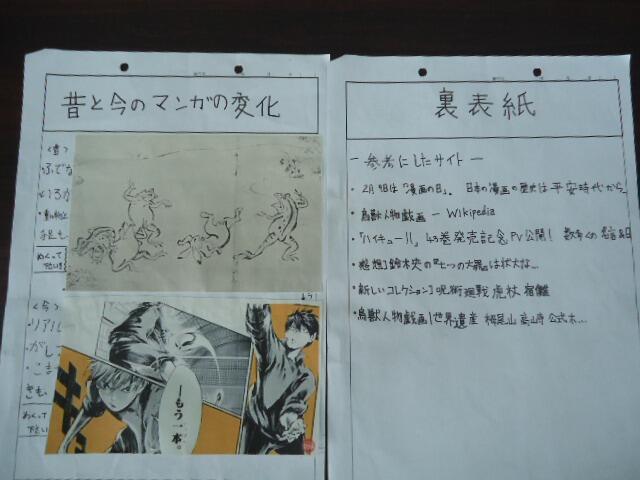 昔と今のマンガの変化
<昔>
ふでか
いろか
足も
めくって
下さい
<今>
リアル
がし
きも
めくって
下さい
―もう一本。
裏表紙
― 参考にしたサイト ―
・2月9日は「漫画の日」。日本の漫画の歴史は平安時代から…
・鳥獣人物戯画 ― Wikipedia
・「ハイキュー!!」43巻発売記念PV公開! 数多くの名言&名
・感想]鈴木央の『七つの大罪』は壮大な…
・新しいコレクション]呪術廻戦 虎杖 宿儺
・鳥獣人物戯画|世界遺産 栂尾山 高山寺 公式ホ…